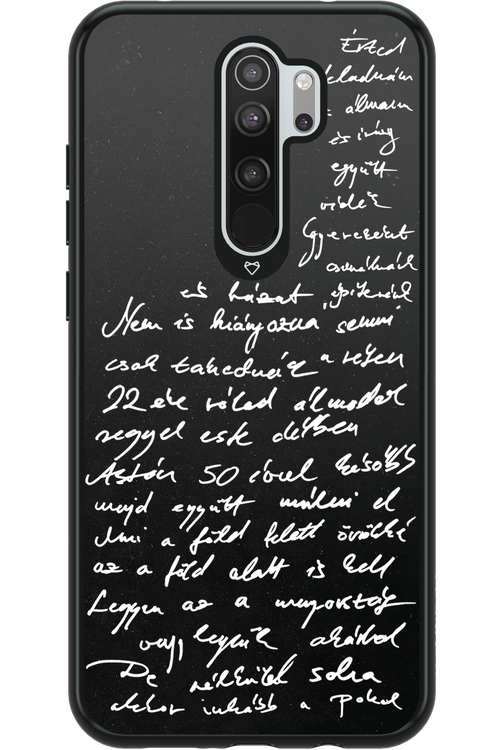 Érted
eladnám
az álmaim
és így
együtt
vidék
Gyerekeket
csinálnánk
és házat építenénk
Nem is hiányozna semmi
csak takednák a réten
22 éve rólad álmodok
reggel este délben
Aztán 50 évvel később
majd együtt múlni el
Ami a föld felett örökké
az a föld alatt is kell
Legyen az a mennyország
vagy legyünk akárhol
De nélküled soha
akkor inkább a pokol